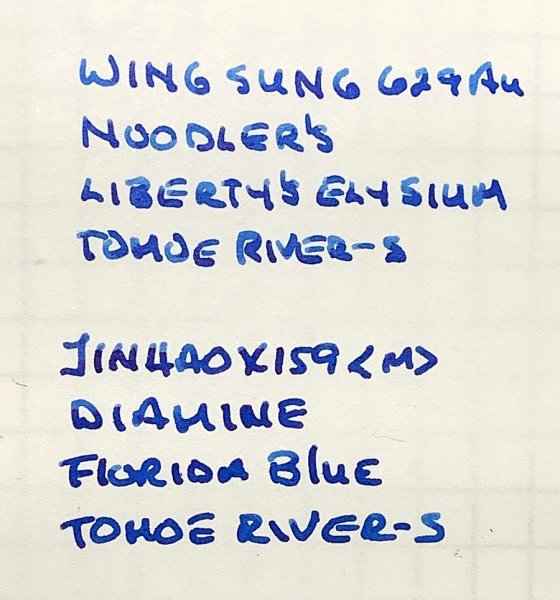 WING SUNG 629 Au
NOODLER'S
LIBERTY'S ELYSIUM
TOMOE RIVER-S
JINHAO X159 <M>
DIAMINE
FLORIDA BLUE
TOMOE RIVER-S